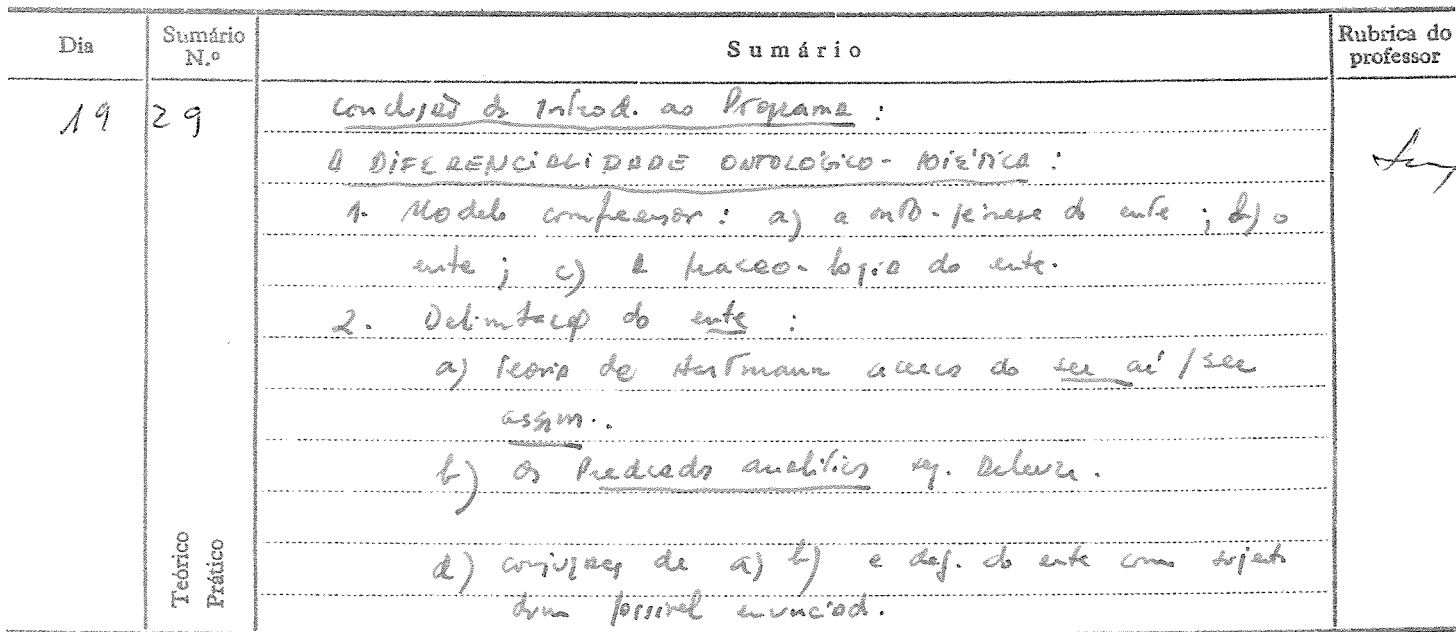 Dia
Sumário N.º
Sumário
Rubrica do professor
19
29
Conclusão da Introd. ao Programa :
A DIFERENCIALIDADE ONTOLÓGICO-POIÉTICA :
1. Modelo compreensor : a) a onto-génese do ente ; b) o
ente ; c) a praceo-logia do ente.
2. Delimitação do ente :
a) Teoria de Hartmann acerca do ser aí / ser
assim.
b) Os Predicados analíticos sg. Deleuze.
d) conjugação de a) b) e def. do ente como sujeito
dum possível enunciado.
Teórico
Prático